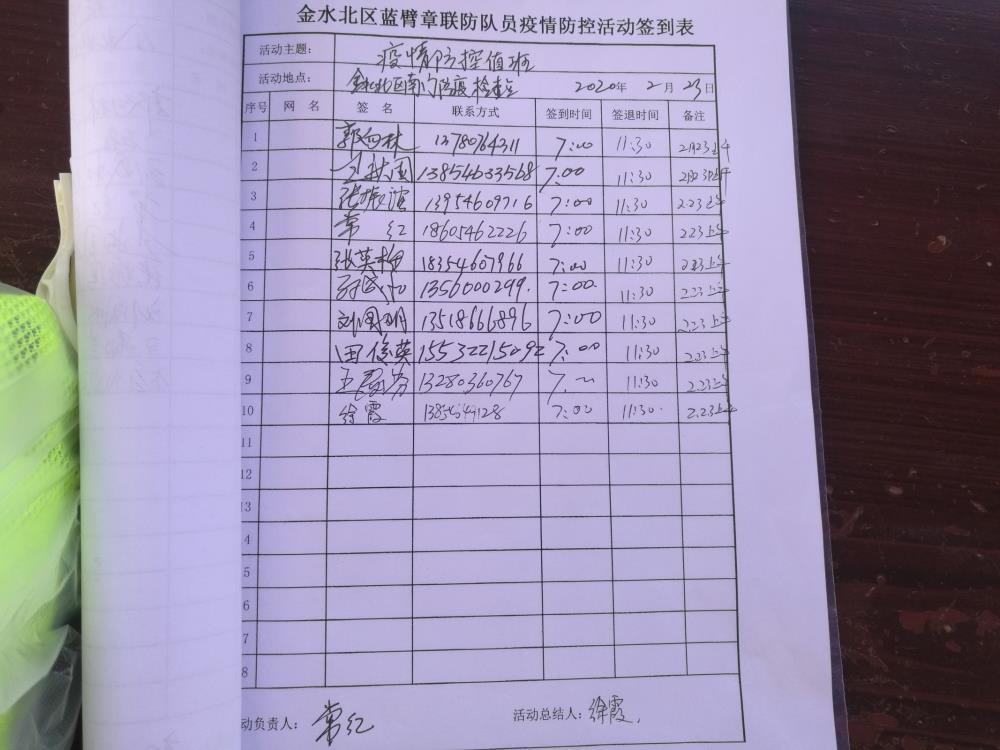 金水北区蓝臂章联防队员疫情防控活动签到表
活动主题： 疫情防控值班
活动地点： 金水北区南门防疫检查点 2020年 2月 23日
序号 网 名 签 名 联系方式 签到时间 签退时间 备注
1 郭向林 13780764311 7:00 11:30 2月23上午
2 13854633568 7:00 11:30 2月23日上午
3 张振谊 13954609716 7:00 11:30 2.23上午
4 常 红 18605462226 7:00 11:30 2.23上午
5 张英梅 18354607966 7:00 11:30 2.23上午
6 1356000299. 7:00 11:30 2.23上午
7 刘国明 13518666896 7:00 11:30 2.23上午
8 田俊英 15532215092 7:00 11:30 2.23上午
9 13280360767 7: 11:30 2.23上午
10 徐霞 7:00 11:30. 2.23上午
11
12
13
14
5
6
7
8
动负责人： 常红 活动总结人： 徐霞.